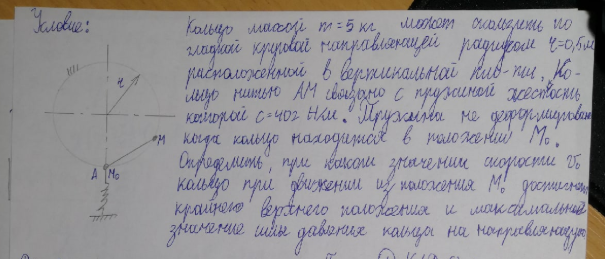 Условие:
Кольцо массой m=5 кг, может скользить по
гладкой круговой направляющей радиусом r=0,5м
расположенной в вертикальной пло-ти. Ко-
льцо нитью AM связано с пружиной жесткость
которой c=402 Н/м. Пружина не деформирована
когда кольцо находится в положении M₀.
Определить, при каком значении скорости V₀
кольцо при движении из положения M₀ достигнет
крайнего верхнего положения и максимальное
значение силы давления кольца на направляющую
r
M
A M₀